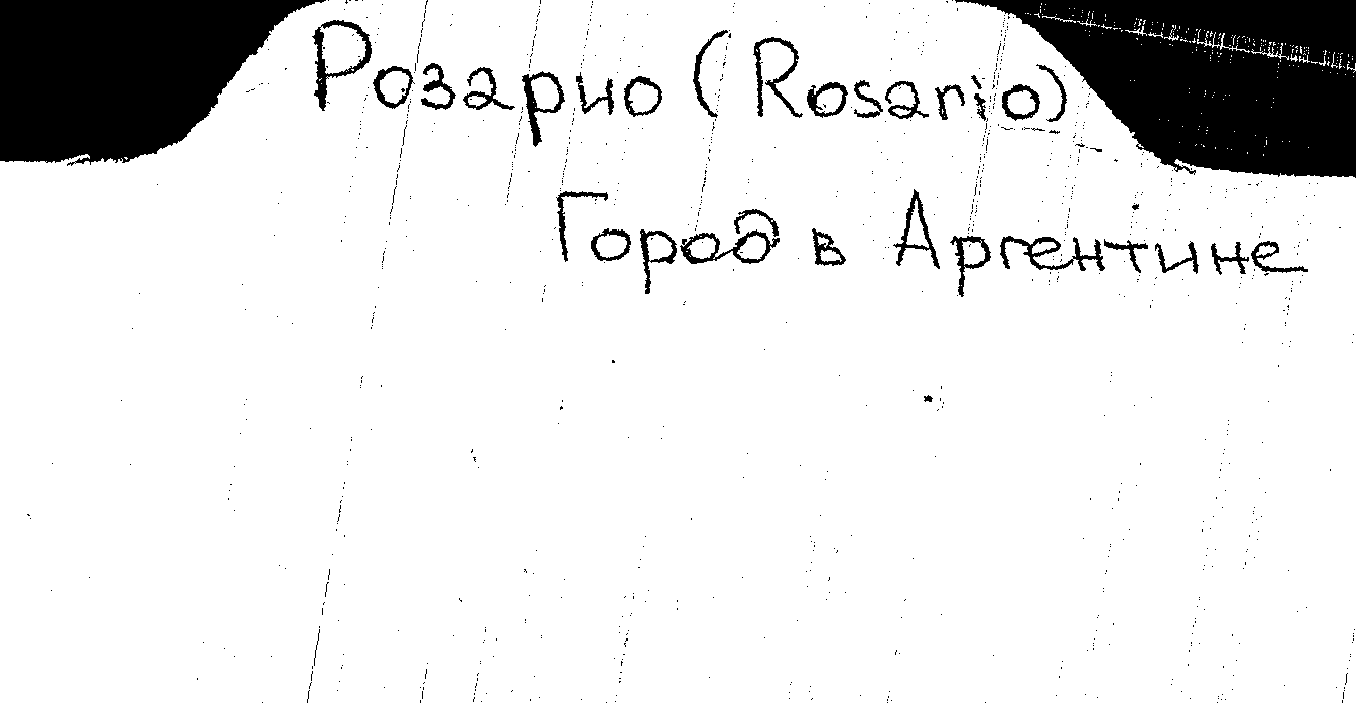 Розарио (Rosario)
Город в Аргентине